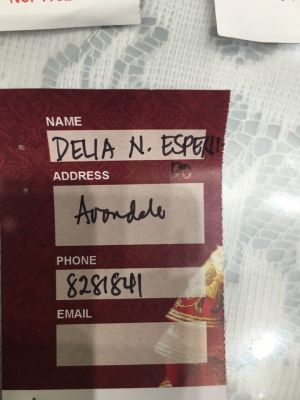 NAME
DELIA N. ESPENI
DO
ADDRESS
Avondale
PHONE
8281841
EMAIL